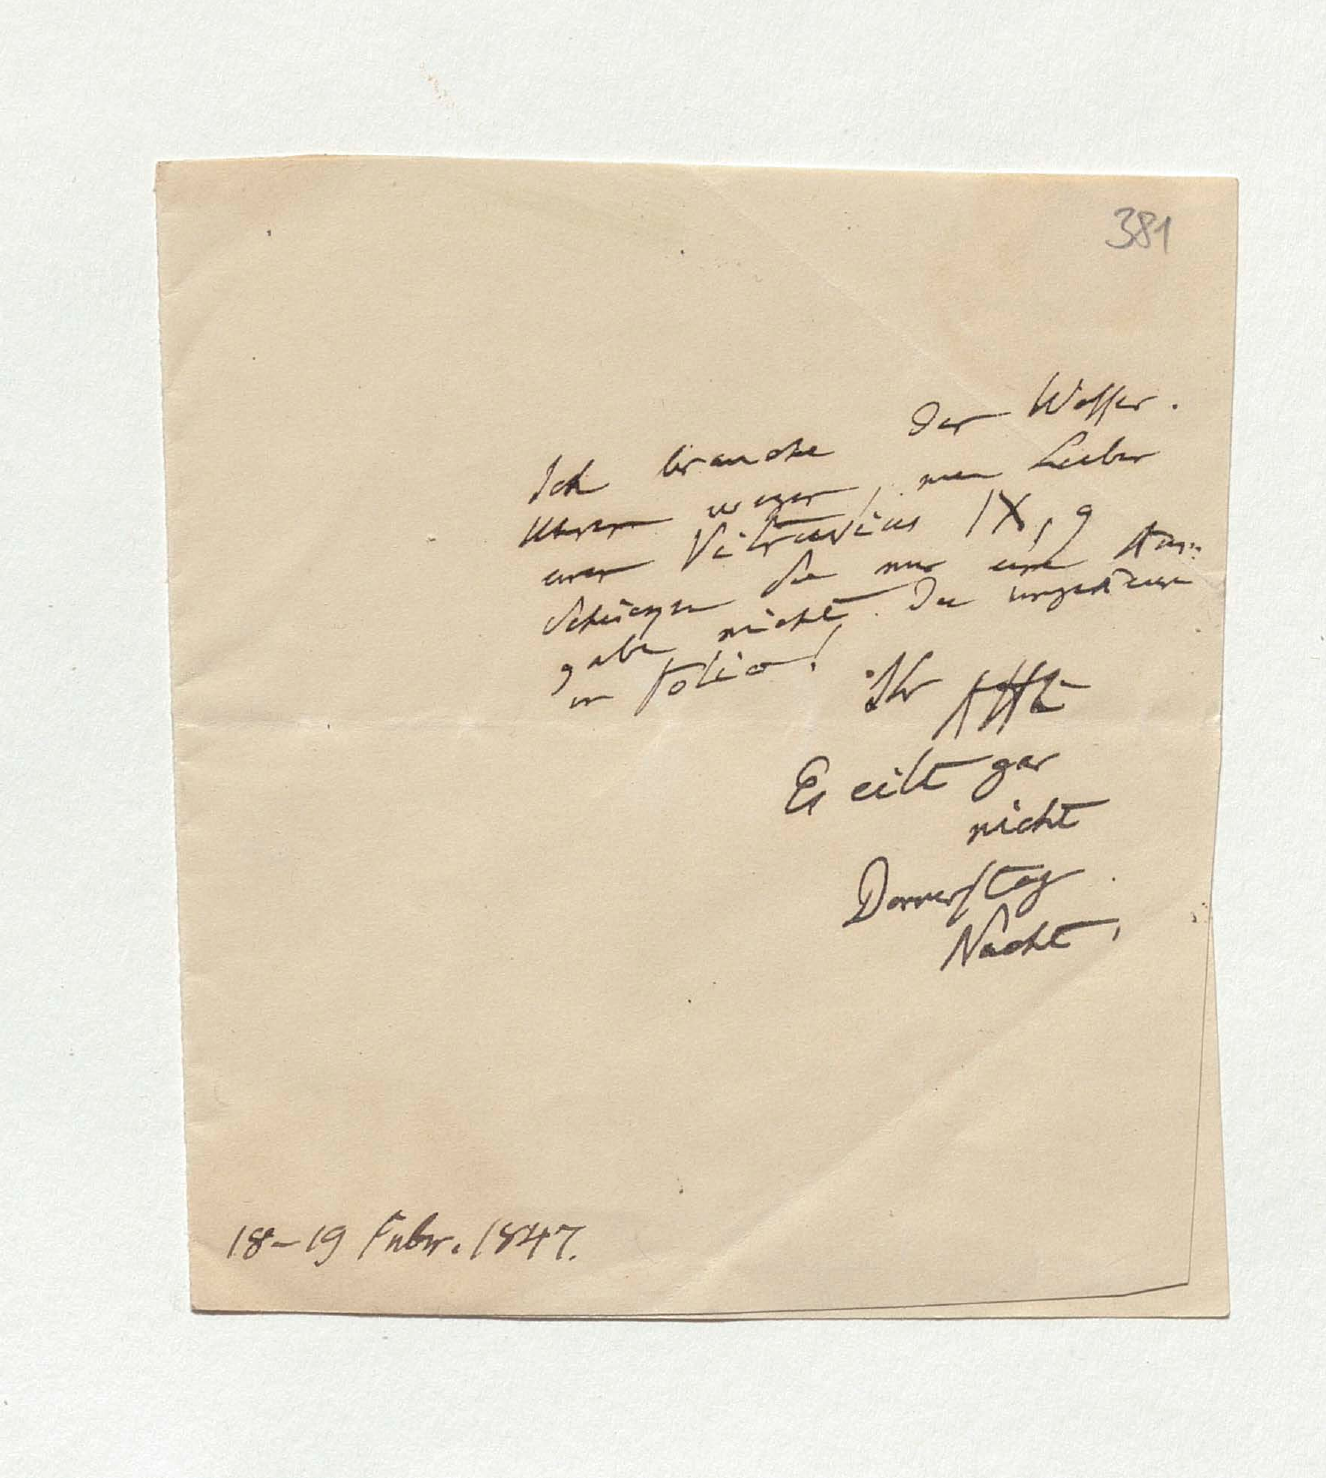 381
Ich brauche der Wasser.
Uhren wegen, mein Lieber
einen Vitruvius IX, 9
Schicken Sie mir eine Aus-
gabe nicht die ungeheure
in folio!
Ihr AHt
Es eilt gar
nicht
Donnerstag
Nacht
18–19 Febr. 1847.